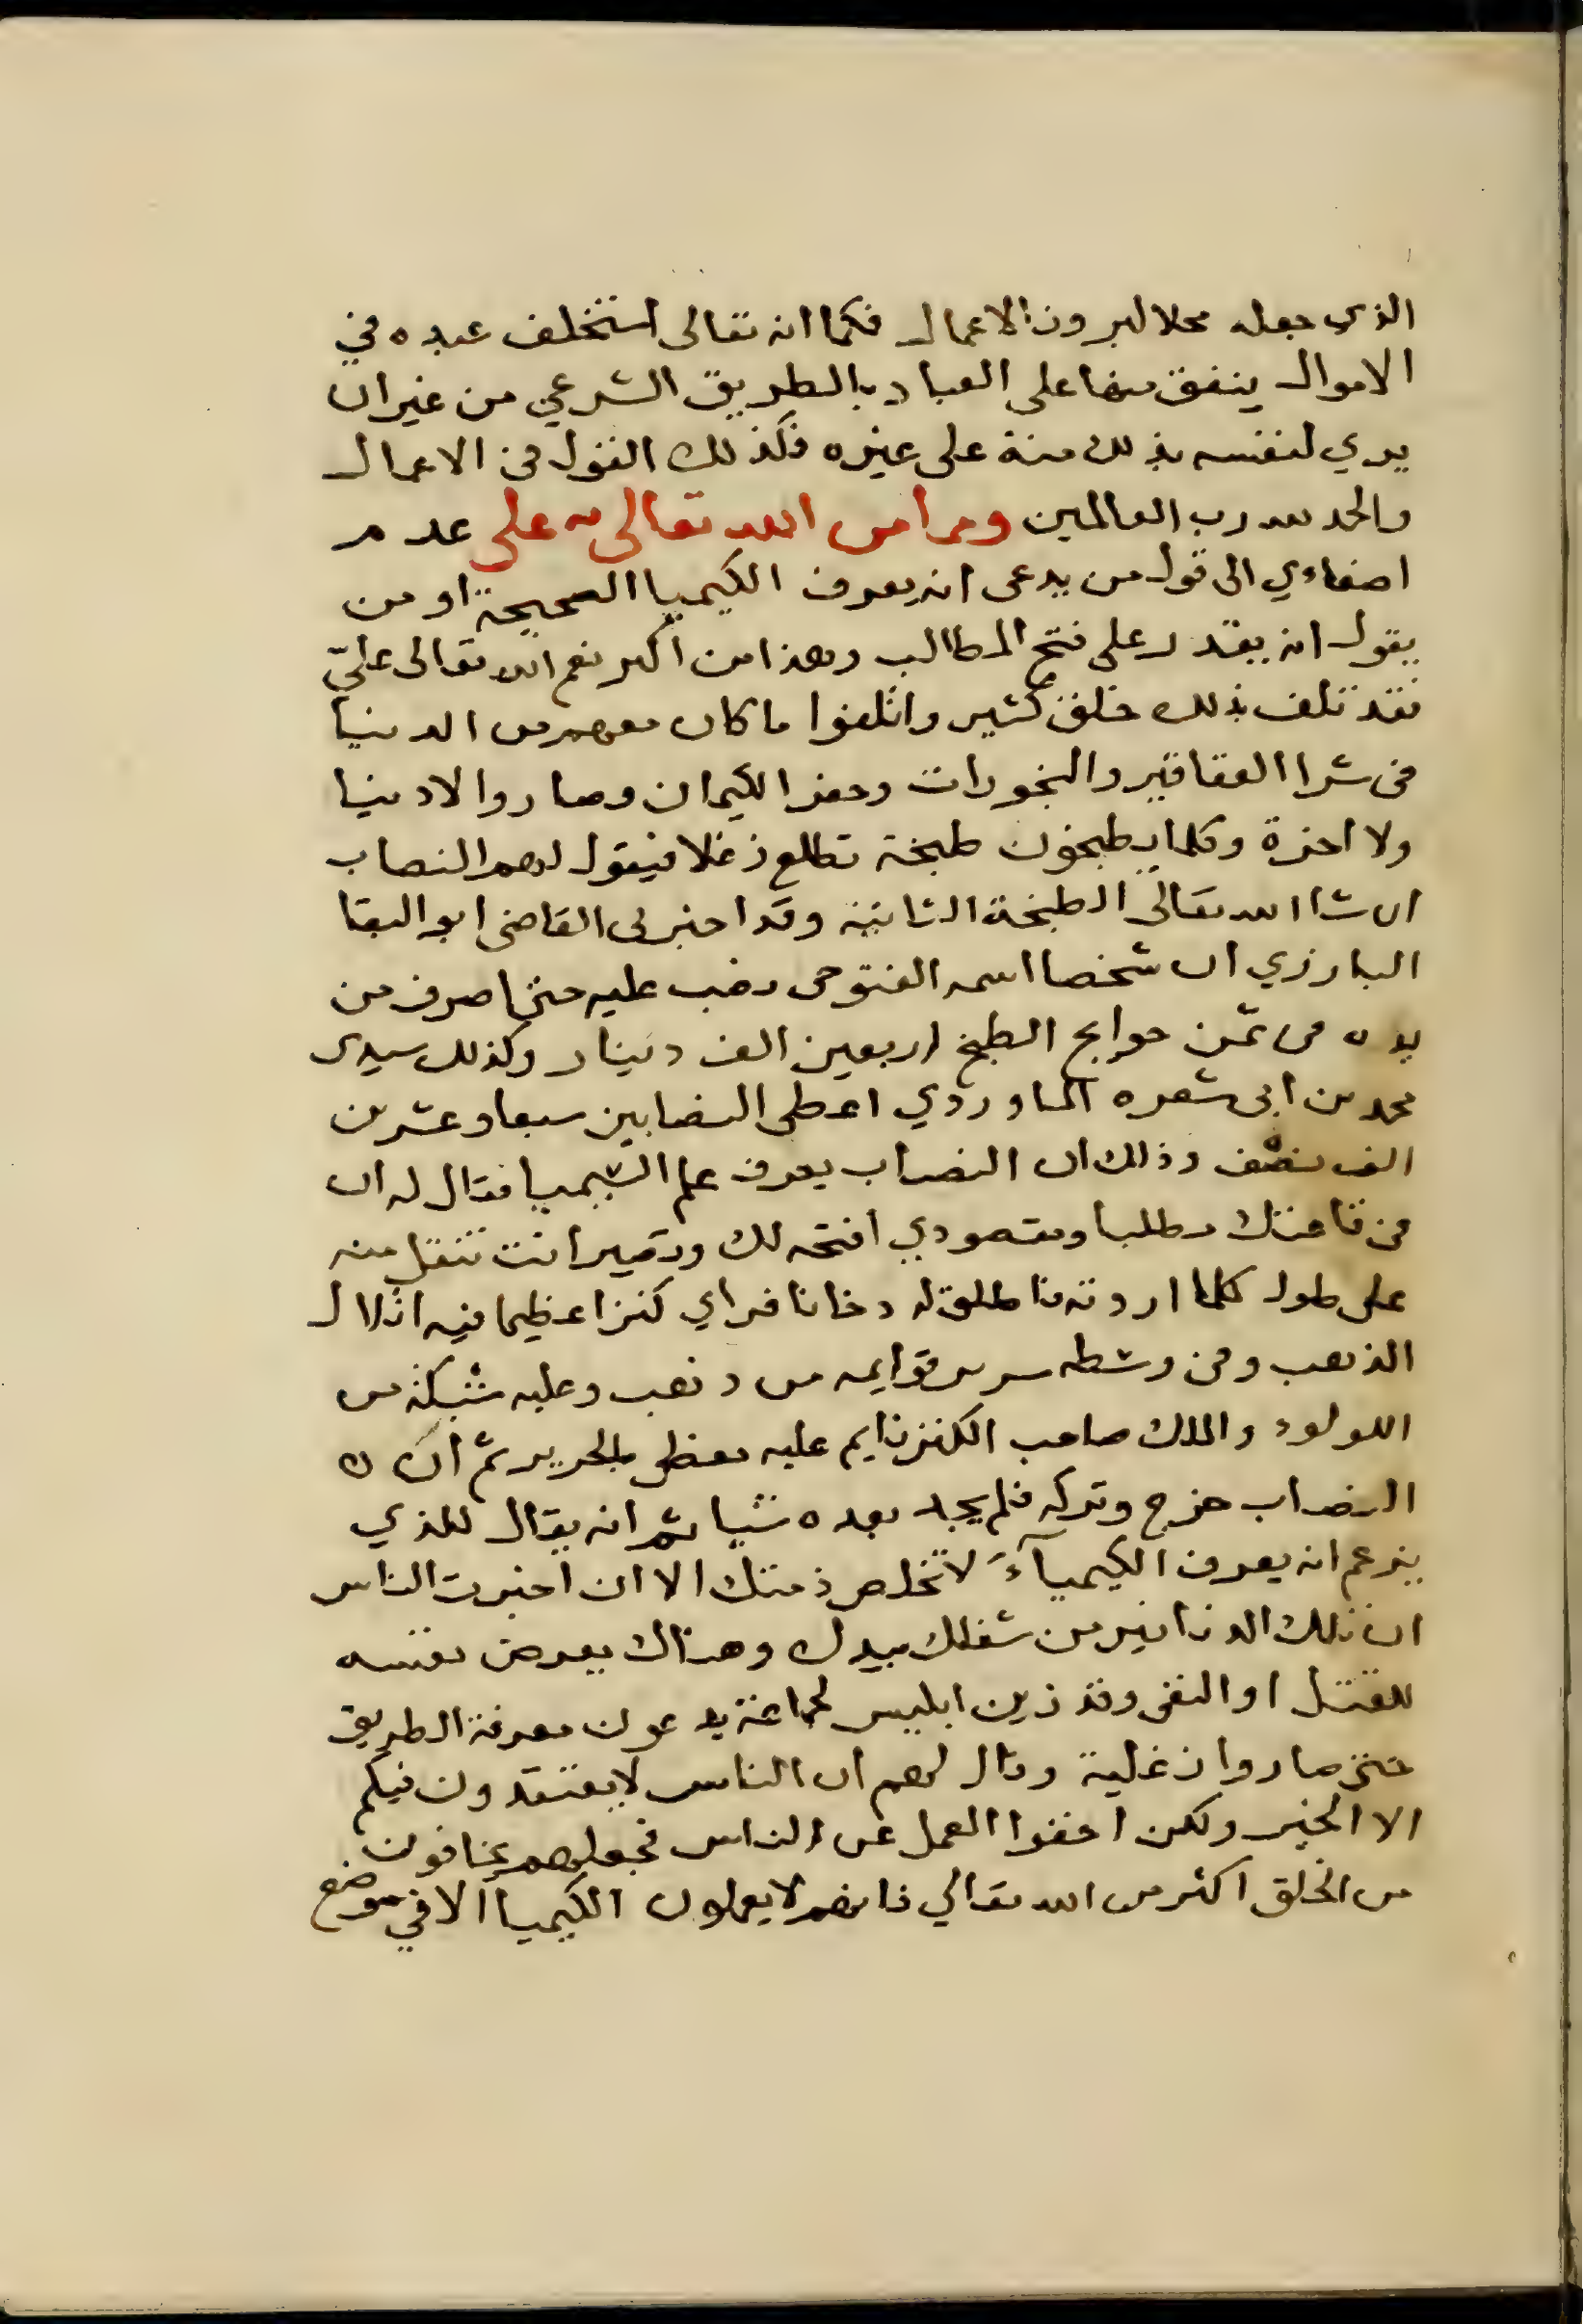 الذي جعله محلا لبروز الاعمال فكما انه تعالى استخلف عبده في
الاموال ينفق منها على العباد بالطريق الشرعي من غير ان
يري لنفسه بذلك منة على غيره فكذلك القول في الاعمال
والحمد لله رب العالمين ومما من الله تعالى به على عدم
اصغاءي الى قول من يدعى انه يعرف الكيميا الصحيحة او من
يقول انه يقدر على فتح المطالب وهذا من اكبر نعم الله تعالى عليّ
فقد تلف بذلك خلق كثير واتلفوا ما كان معهم من الدنيا
في شرا العقاقير والبخورات وحفر الكيمان وصاروا لا دنيا
ولا اخرة وكلما يطبخون طبخة تطلع زغلا فيقول لهم النصاب
ان شا الله تعالى الطبخة الثانية وقد اخبرني القاضى ابو البقا
البارزي ان شخصا اسمه الفتوحى نصب عليه حتى اصرف من
يده في ثمن حوايج الطبخ اربعين الف دينار وكذلك سيدى
محمد بن ابى شعره الماوردي اعطى النصابين سبعا وعشرين
الف نصف وذلك ان النصاب يعرف علم السيميا فقال له ان
في قاعتك مطلبا ومقصودي افتحه لك وتصير انت تنقل منه
على طول كلما اردته فاطلق له دخانا فراي كنزا عظيما فيه اتلال
الذهب وفي وسطه سرير قوايمه من ذهب وعليه شبكة من
اللولوء والملك صاحب الكنز نايم عليه مغطى بالحرير ثم ان
النصاب خرج وتركه فلم يجد بعده شيا ثم انه يقال للذي
يزعم انه يعرف الكيمياءَ لا تخلص ذمتك الا ان اخبرت الناس
ان تلك الدنانير من شغلك بيدك وهناك يعرض نفسه
للقتل او النفى وقد زين ابليس لجماعة يدعون معرفة الطريق
حتى صاروا زغلية وقال لهم ان الناس لا يعتقدون فيكم
الا الخير ولكن اخفوا العمل عن الناس فجعلهم يخافون
من الخلق اكثر من الله تعالي فانهم لا يعملون الكيميا الا في موضع